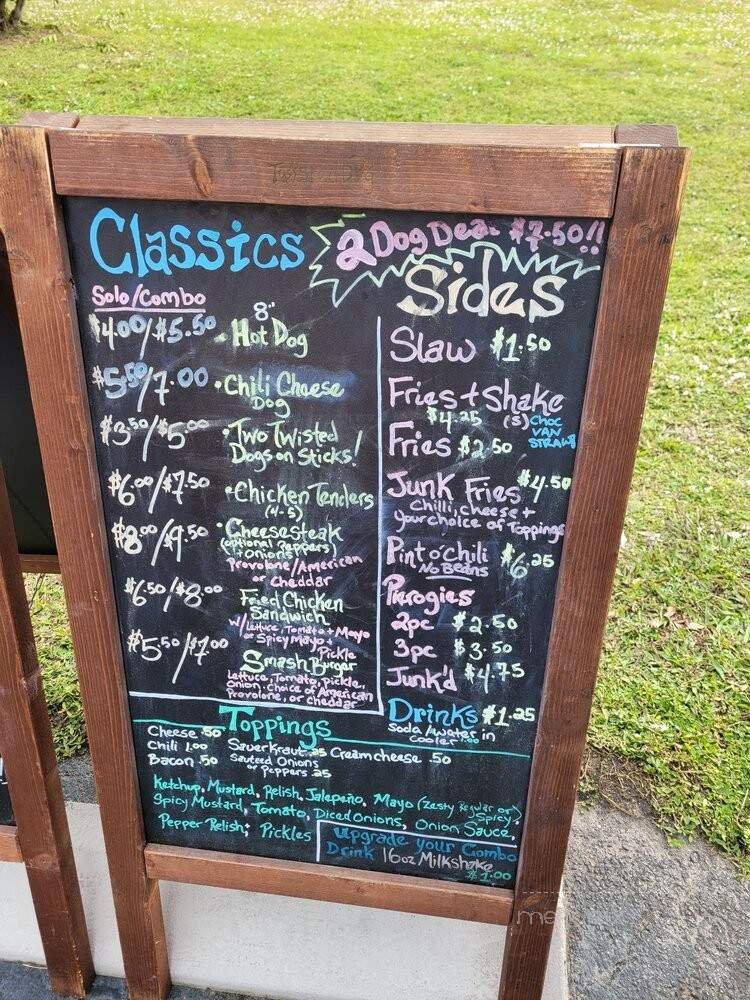 Classics
2 Dog Deal $7.50!!
Solo/Combo
$4.00/$5.50 • 8" Hot Dog
$5.50/7.00 • Chili Cheese
Dog
$3.50/$5.00 • Two Twisted
Dogs on Sticks!
$6.00/$7.50 • Chicken Tenders
(4-5)
$8.00/$9.50 • Cheesesteak
(optional Peppers
+ Onions)
Provolone/American
or cheddar
$6.50/$8.00 Fried Chicken
Sandwich
w/Lettuce, Tomato + Mayo
or Spicy Mayo +
Pickle
$5.50/$7.00 Smash Burger
Lettuce, Tomato, pickle,
Onion. Choice of American
Provolone, or cheddar
Sides
Slaw $1.50
Fries + Shake
$4.25 (s) Choc
VAN
STRAW
Fries $2.50
Junk Fries $4.50
Chilli, cheese +
your choice of Toppings
Pint o' chili $6.25
No Beans
Pierogies
2pc $2.50
3pc $3.50
Junk'd $4.75
Drinks $1.25
Soda/water in
cooler 1.00
Toppings
Cheese .50
Chili 1.00 Sauerkraut .25 Creamcheese .50
Bacon .50 Sauteed Onions
or Peppers .25
Ketchup, Mustard, Relish, Jalepeño, Mayo (Zesty Regular or)
Spicy
Spicy Mustard, Tomato, Diced Onions, Onion Sauce,
Pepper Relish, Pickles
Upgrade your Combo
Drink 16oz Milkshake
$1.00